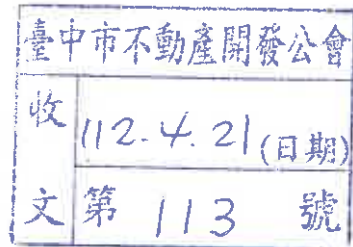 臺中市不動產開發公會
收
112.4.21(日期)
文 第 113 號